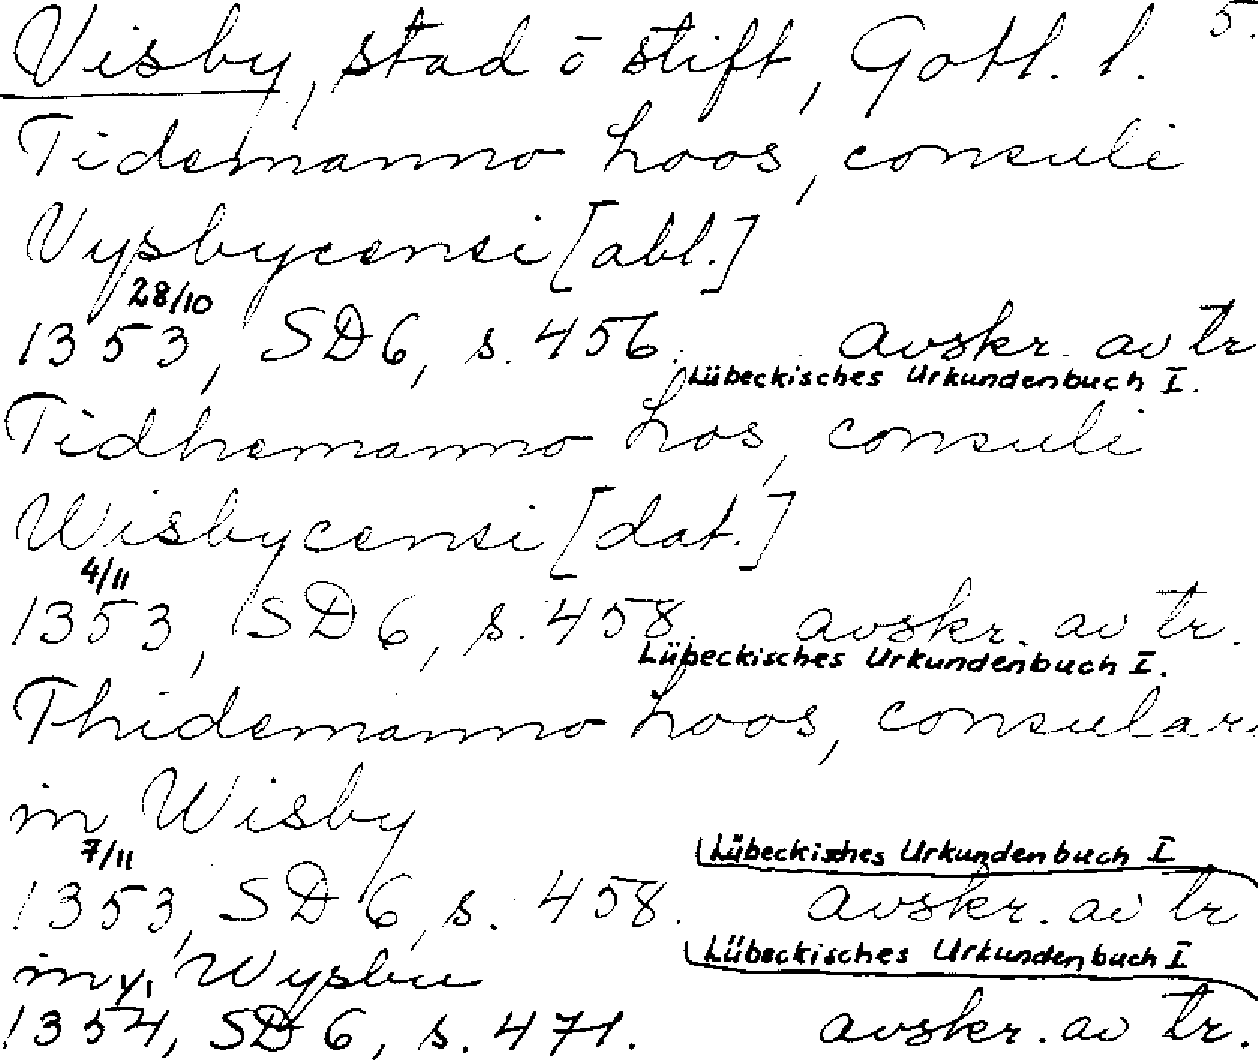 5.
Visby, stad o stift, Gotl. l.
Tidemanno Loos, consuli
Vysbycensi [abl.]
28/10
1353, SD 6, s. 456. avskr. av tr
Lübeckisches Urkundenbuch I.
Tidhemanno Los, consuli
Wisbycensi [dat.]
4/11
1353, SD 6, s. 458. avskr. av tr.
Lübeckisches Urkundenbuch I.
Thidemanno Loos, consulari
in Wisby
7/11 Lübeckisches Urkundenbuch I
1353, SD 6, s. 458. avskr. av tr
Lübeckisches Urkundenbuch I
in Wysbu
1354, SD 6, s. 471. avskr. av tr.